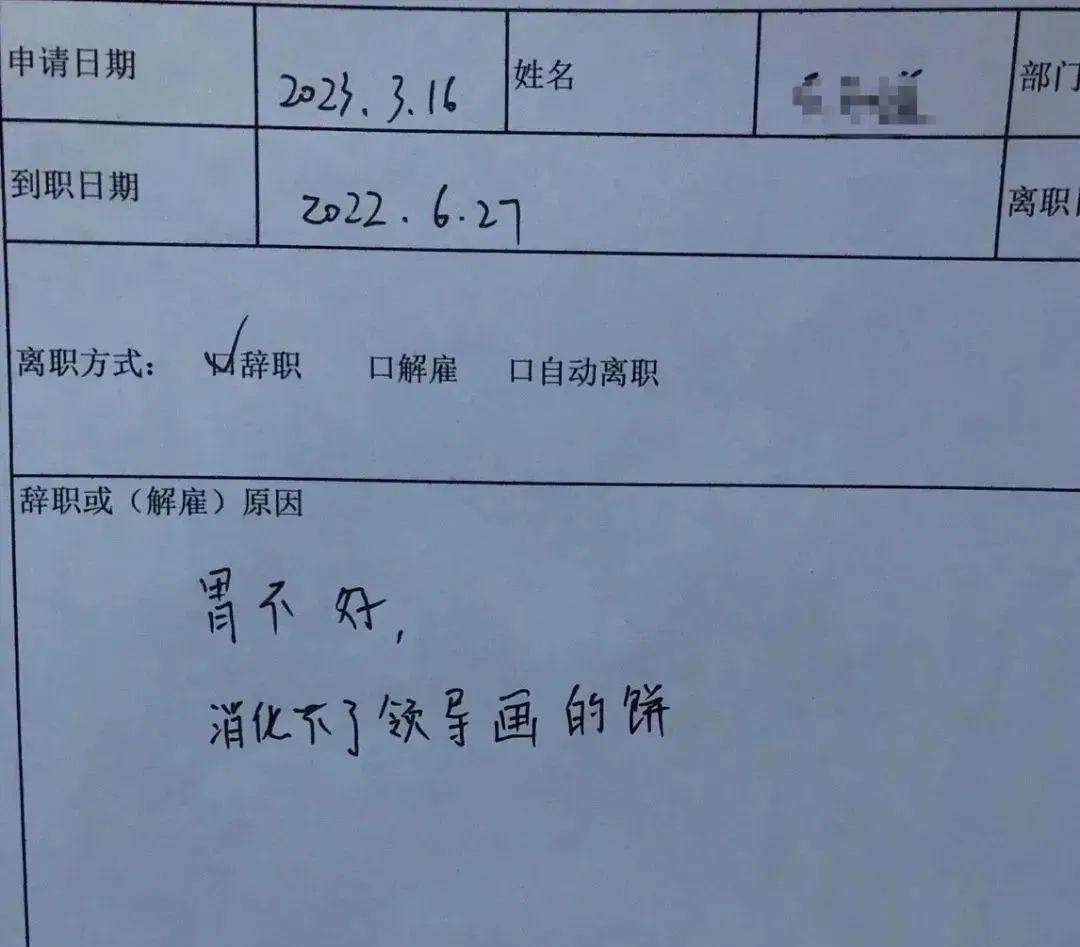 申请日期 2023.3.16 姓名 部门
到职日期 2022.6.27 离职
离职方式： ☑辞职 口解雇 口自动离职
辞职或（解雇）原因
胃不好，
消化不了领导画的饼